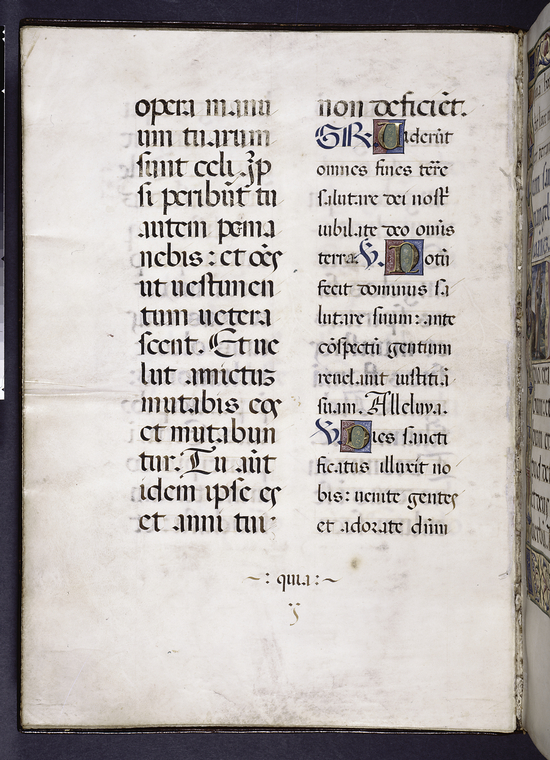 opera manu
um tuarum
sunt celi. Ip
si peribūt tu
autem perma
nebis: et oēs
ut uestimen
tum uetera
scent. Et ue
lut amictuʒ
mutabis eos
et mutabun
tur. Tu aūt
idem ipse es
et anni tui
non deficiēt.
GR. Uiderūt
omnes fines tērē
salutare dei nostʳ
iubilate deo omīs
terra. V. Notū
fecit dominus sa
lutare suum: ante
cōspectū gentium
reuelauit iustitiā
suam. Alleluya.
V. Dies sancti
ficatus illuxit no
bis: uenite gentes
et adorate dūm
~: quia :~